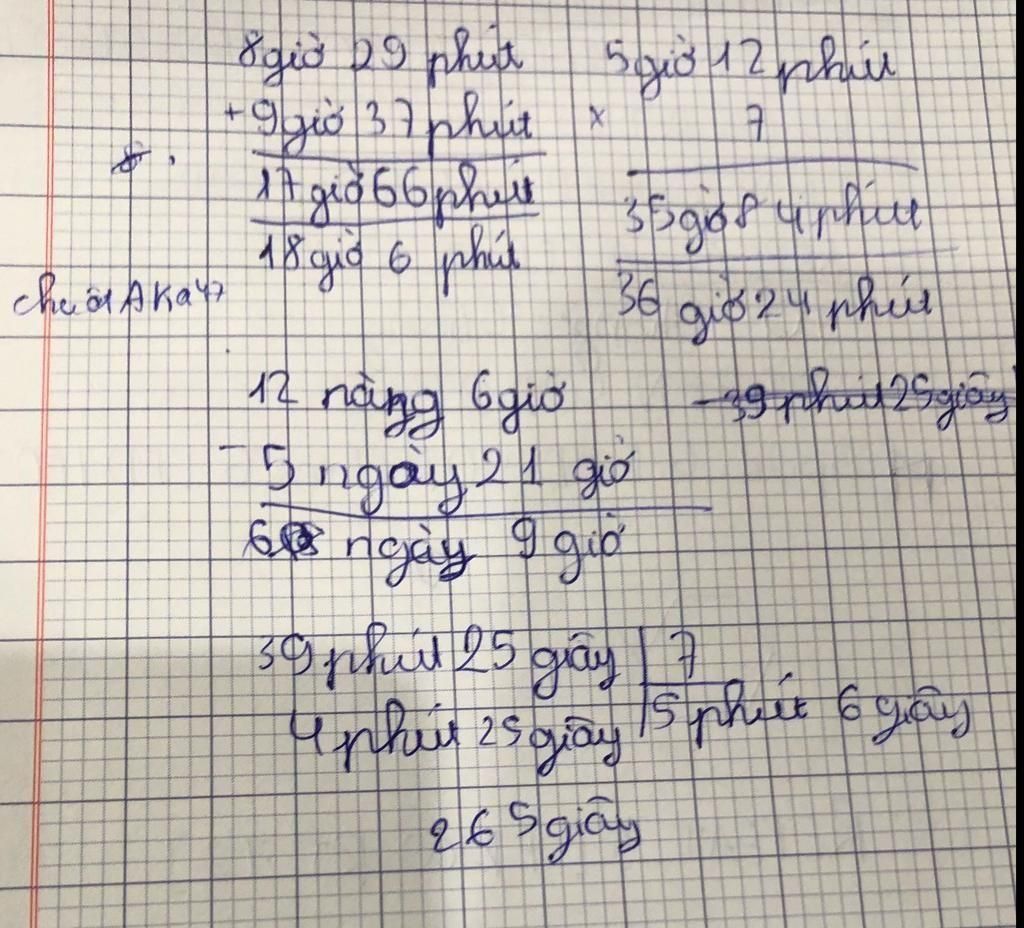 8giờ 29 phút
+ 9giờ 37 phút
17 giờ 66 phút
18 giờ 6 phút
5 giờ 12 phút
x 7
35 giờ 84 phút
36 giờ 24 phút
AKa47
12 nàng 6 giờ
- 5 ngày 21 giờ
6 ngày 9 giờ
- 39 phút 25 giây
39 phút 25 giây | 7
4 phút 25 giây | 5 phút 6 giây
265 giây